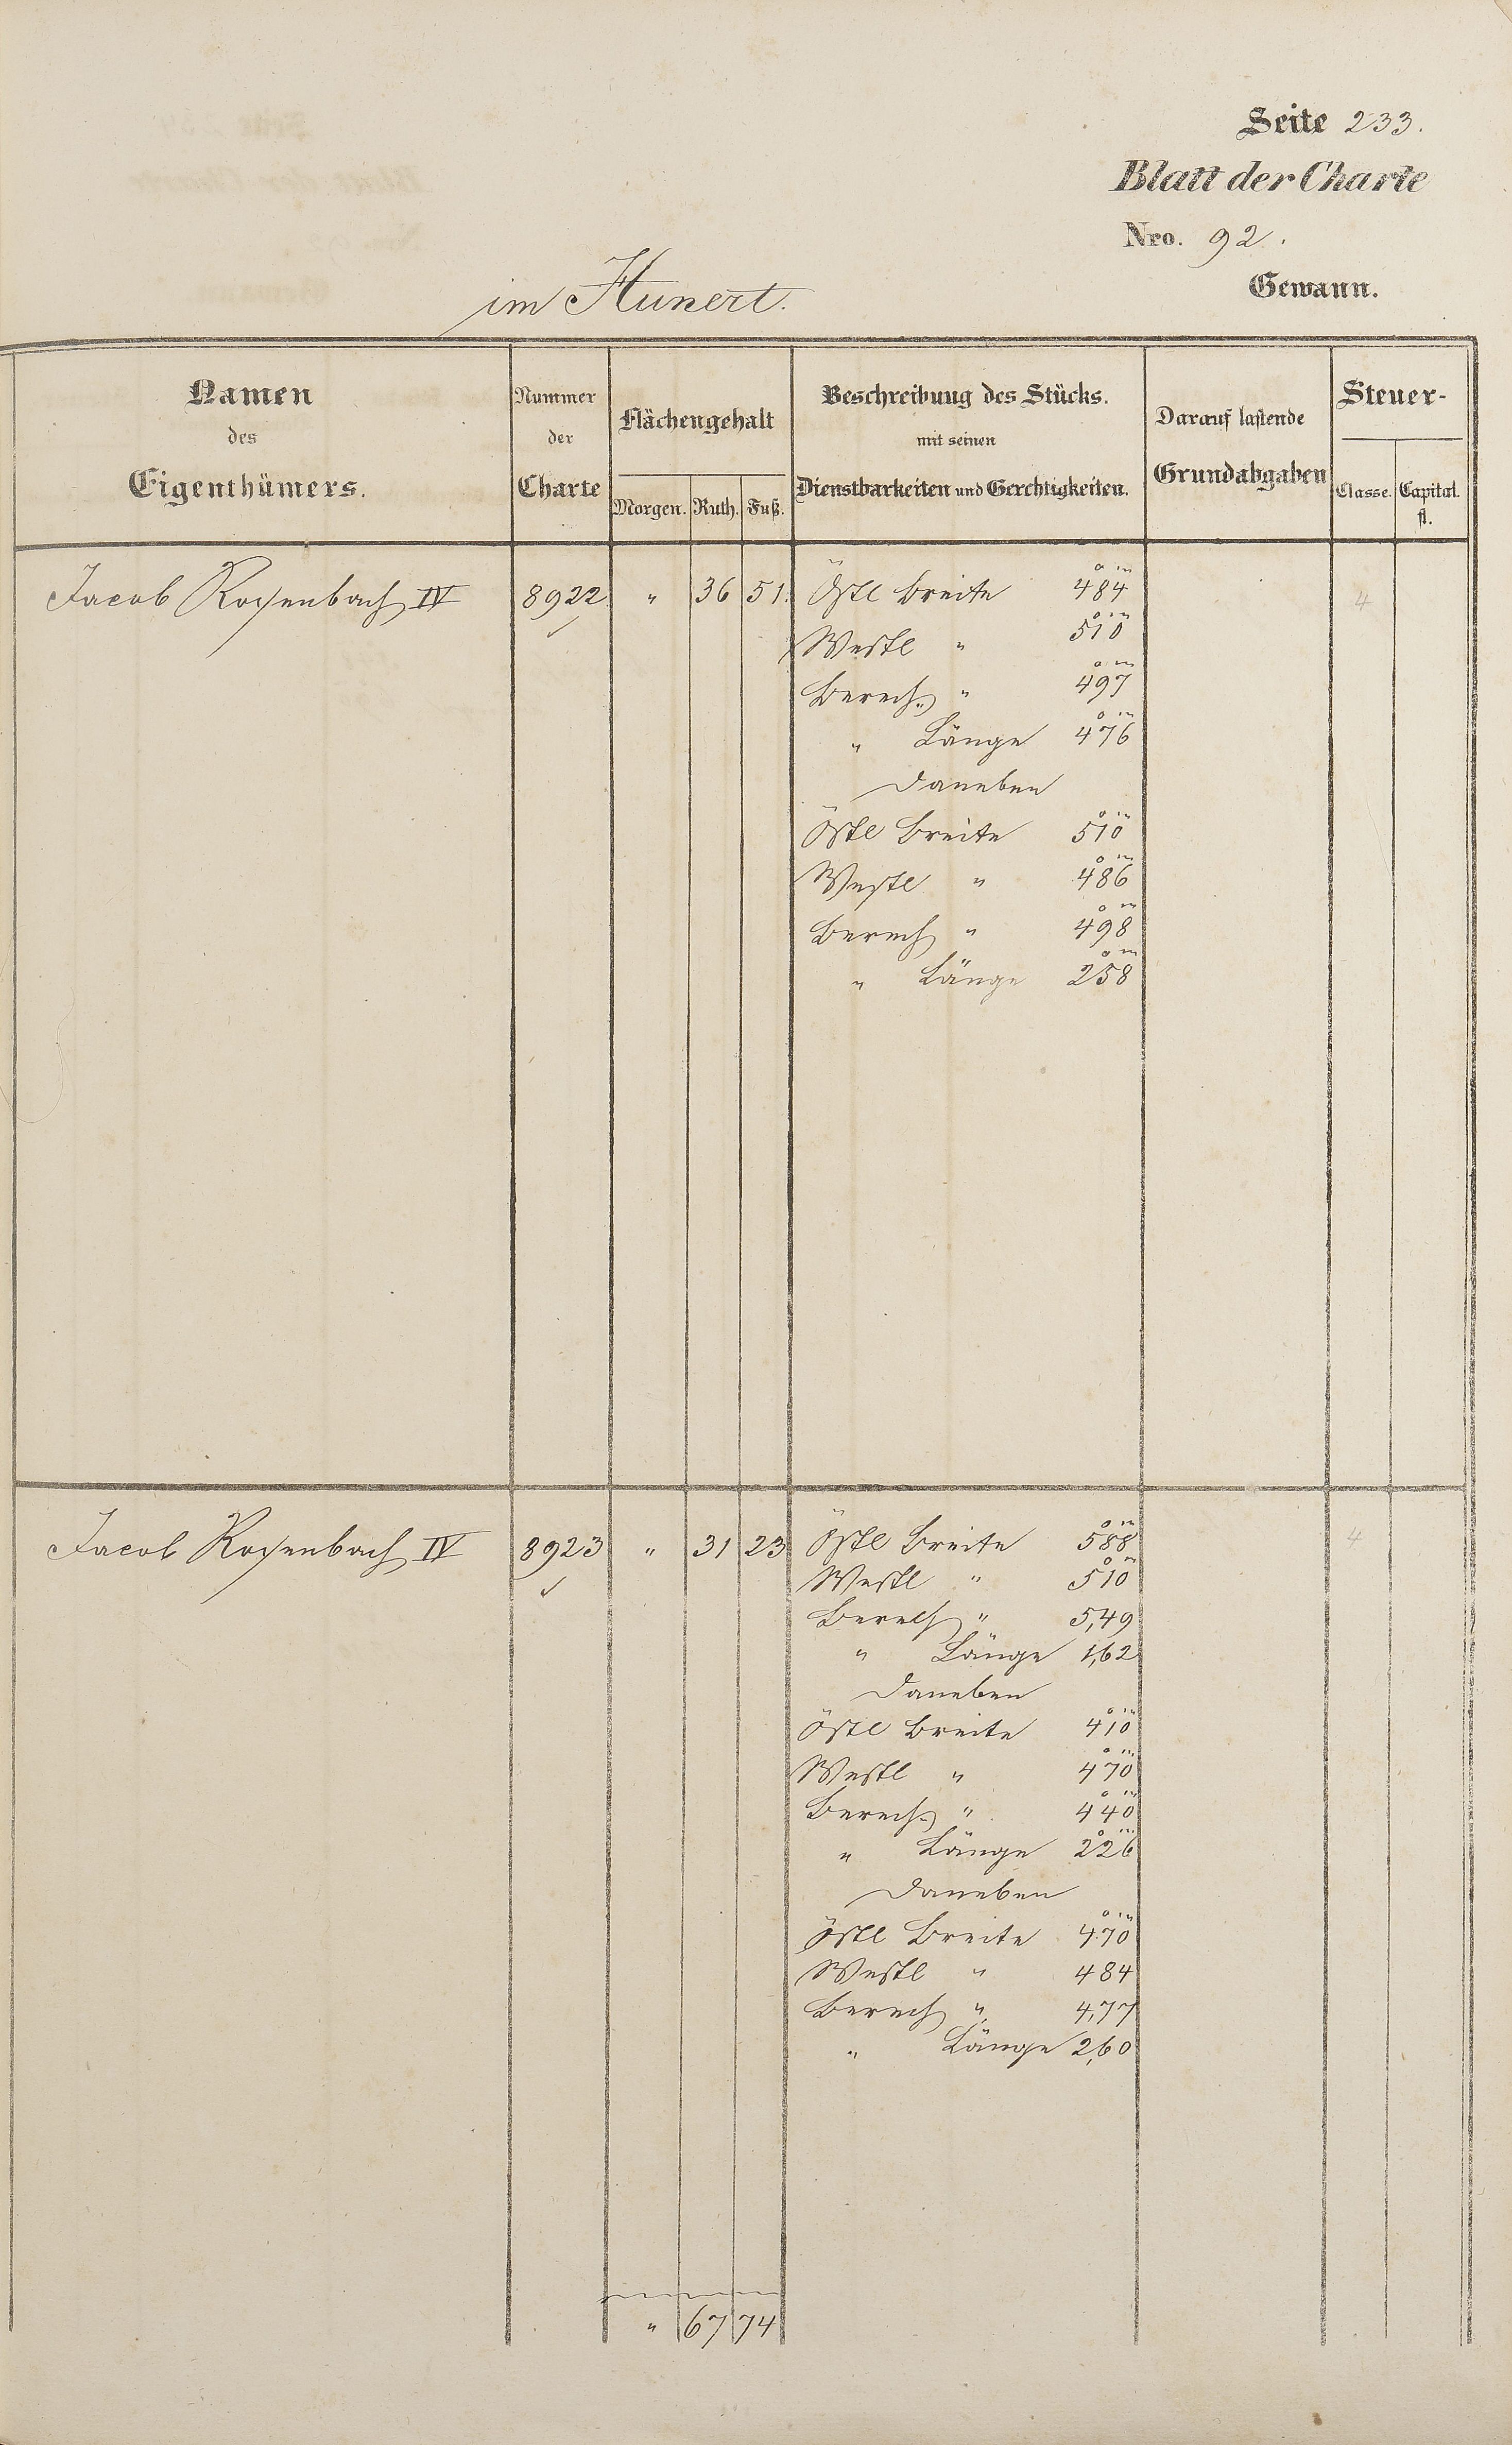 Seite 233.
Blatt der Charte
Nro. 92.
Gewann.
im Hunert.
Namen des Eigenthümers.
Nummer der Charte
Flächengehalt
Morgen. Ruth. Fuß.
Beschreibung des Stücks.
mit seinen
Dienstbarkeiten und Gerechtigkeiten.
Darauf lastende
Grundabgaben
Steuer-
Classe. Capital.
fl.
Jacob Roßenbach IV 8922 " 36 51. Östl Breite 4°84''' 4
Westl " 5°10'''
Berech. " 4°97'''
" Länge 4°76'''
Daneben
Östl Breite 5°10'''
Westl " 4°86'''
Berech " 4°98'''
" Länge 2°58'''
Jacob Roßenbach IV 8923 " 31 23 Östl Breite 5°88''' 4
Westl " 5°10'''
Berech " 5,49
" Länge 1,62
Daneben
Östl Breite 4°10'''
Westl " 4°70'''
Berech. " 4°40'''
" Länge 2°26'''
Daneben
Östl Breite 4°70'''
Westl " 484
Berech " 4,77
" Länge 2,60
" 67 74